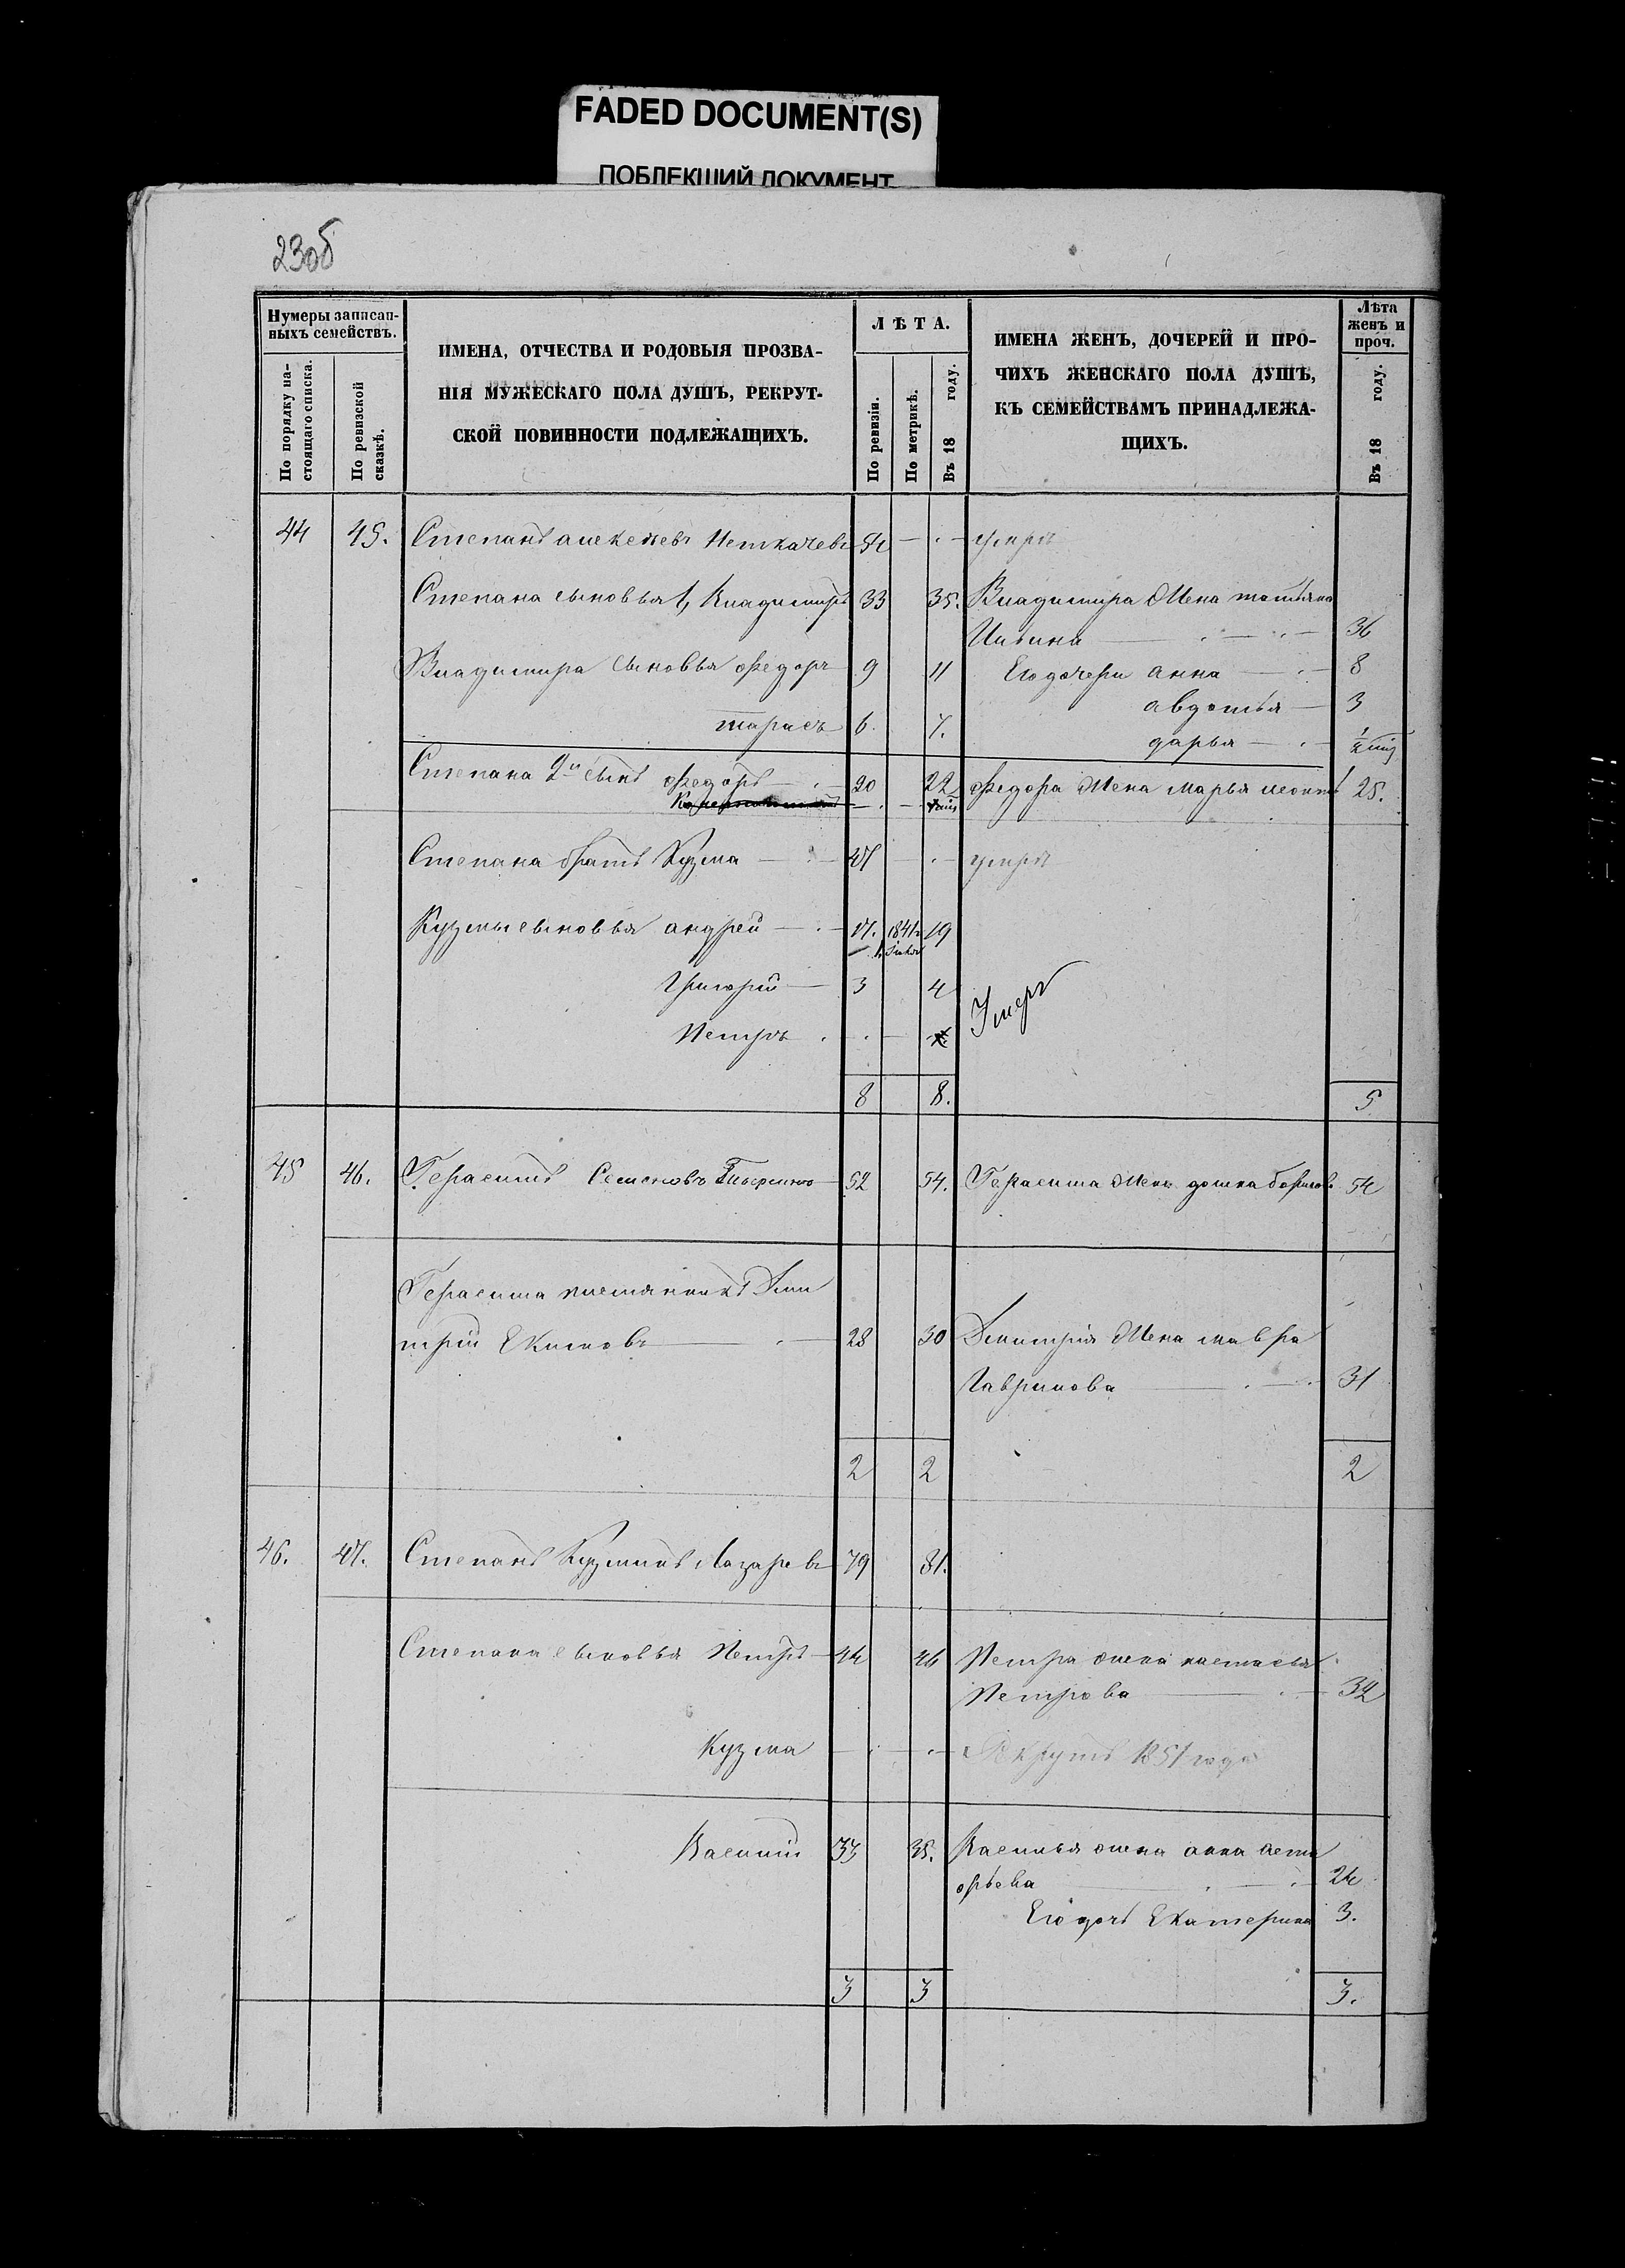 FADED DOCUMENT(S)
ПОБЛЕКШИЙ ДОКУМЕНТ
23об
Нумеры записан-
ныхъ семействъ.
По порядку на-
стоящаго списка.
По ревизской
сказкѣ.
ИМЕНА, ОТЧЕСТВА И РОДОВЫЯ ПРОЗВА-
НІЯ МУЖЕСКАГО ПОЛА ДУШЪ, РЕКРУТ-
СКОЙ ПОВИННОСТИ ПОДЛЕЖАЩИХЪ.
ЛѢТА.
По ревизіи.
По метрикѣ.
Въ 18 году.
ИМЕНА ЖЕНЪ, ДОЧЕРЕЙ И ПРО-
ЧИХЪ ЖЕНСКАГО ПОЛА ДУШЪ,
КЪ СЕМЕЙСТВАМЪ ПРИНАДЛЕЖА-
ЩИХЪ.
Лѣта
женъ и
проч.
Въ 18 году.
44 45. Степанъ алексѣевъ 54 — . — умръ
Степана сыновья 1, Владимиръ 33 35. Владимира жена татьяна
Ильина — . — . — 36
Владимира сыновья федоръ 9 11 Его дочери анна — . — 8
тарасъ 6. 7. авдотья — 3
дарья — . — 1/2
Степана 2й сынъ федоръ — . — 20 22 федора жена марья леонть 25.
Степана братъ Кузма — . — 47 . — умръ
Кузмы сыновья андрей — . — 17. 1841 19
Григорій — 3 4 Умеръ
Петръ . . —
8 8. 5
45 46. Герасимъ Семеновъ 52 54. Герасима жена домна борисов 54
Герасима племянникъ Дми
трій Екимовъ — . — 28 30 Дмитрія жена мавра
Гаврилова — . — . 31
2 2 2
46. 47. Степанъ Кузминъ Лазаревъ 79 81.
Степана сыновья Петръ — 44 46 Петра жена настасья
Петрова — . — 32
Кузма — . — . — Рекрутъ 1851 года
Василій 33 35. Василья жена анна
24
Его дочь Екатерина 3.
3 3 3.